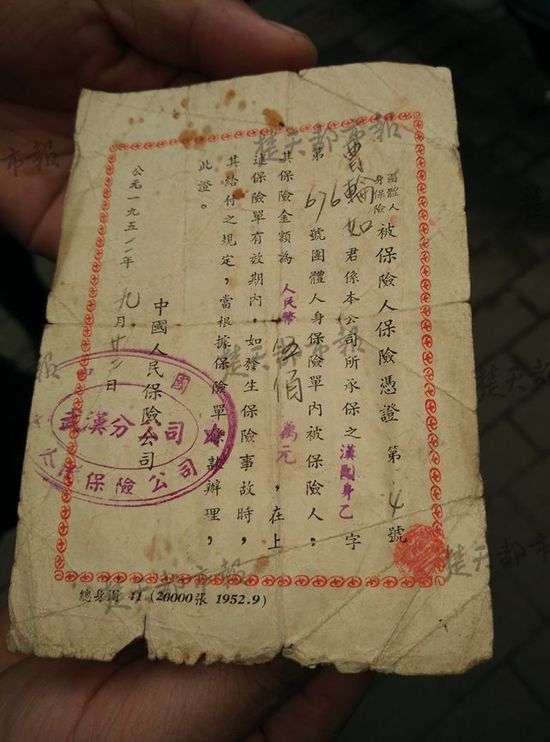 團體人身保險 被保險人保險憑證 第 4 號
曹輪如 君係本公司所承保之 漢團身乙 字
第 676 號團體人身保險單內被保險人，
其保險金額為 人民幣 伍佰 萬元，在上
述保險單有效期內，如發生保險事故時，
其給付之規定，當根據保險單條款辦理，
此證。
中國人民保險公司
公元一九五二年 九月 日
武漢分公司
保險公司
總身團 41 (20000張 1952.9)
楚天都市報